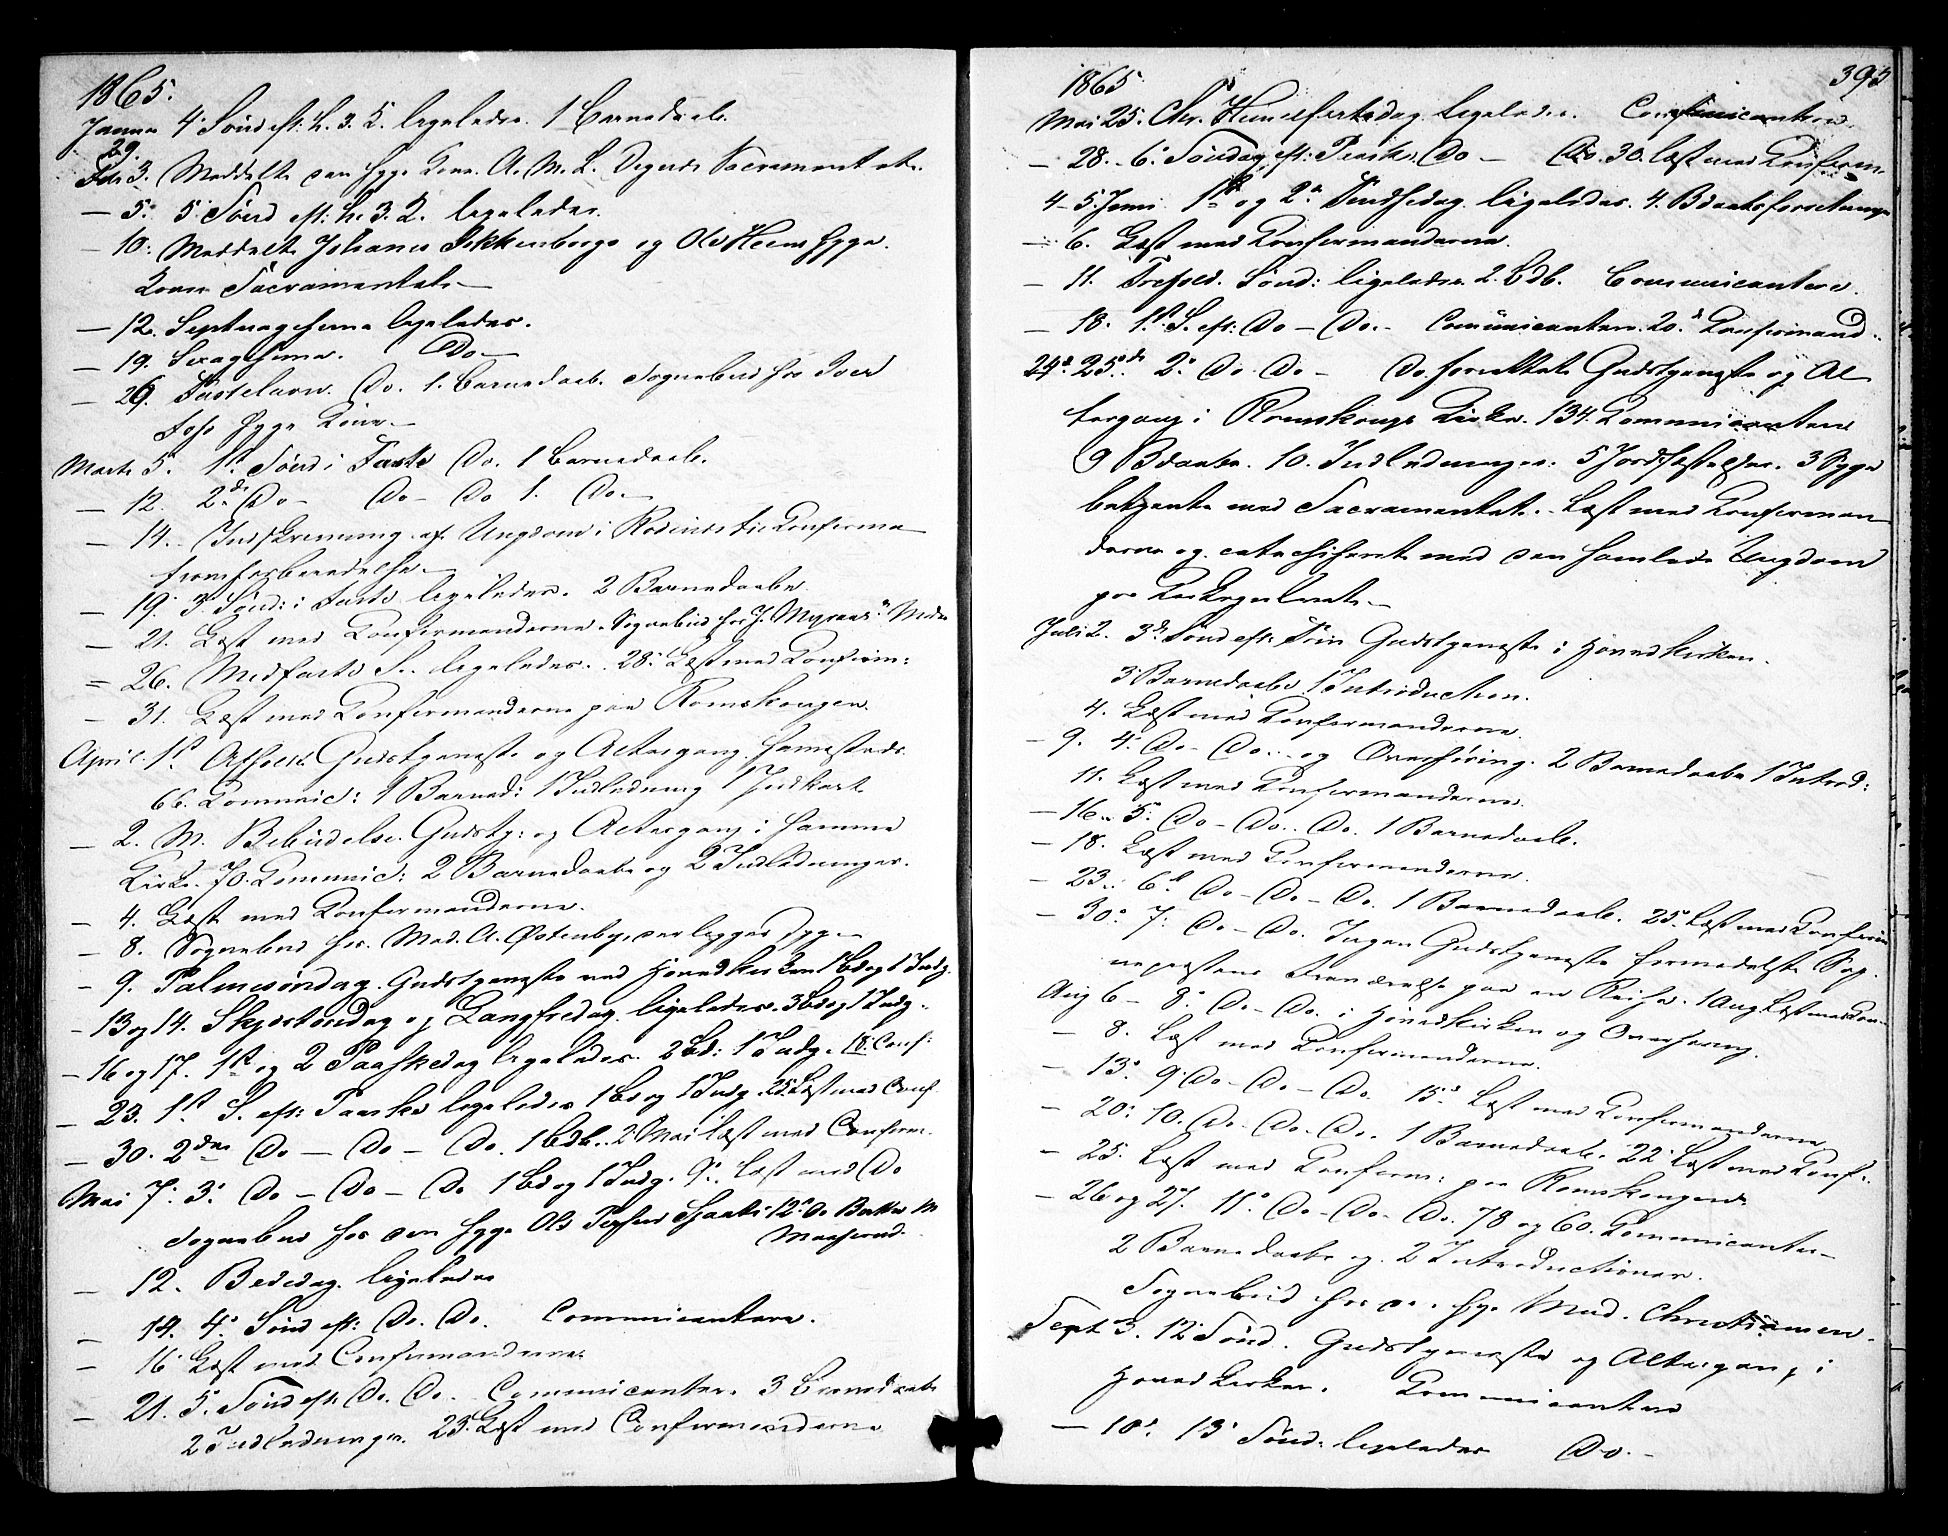 1865.
Januar 4 Sønd eft. h. 3. K. ligeledes. 1 Barnedaab.
29.
Feb 3. Meddelt den syge Kone A. M. L. Sacramentet.
— 5. 5 Sønd eft: h. 3. K. ligeledes.
— 10. Meddelt Johannes og Ole syge
Koner Sacramentet —
— 12. Septuagesima ligeledes.
— 19. Sexagesima. Do —
— 26. Fastelavn. Do. 1. Barnedaab. Sognebud hos Iver
syge Kone —
Marts 5. 1st Sønd i Faste Do. 1 Barnedaab.
— 12. 2den Do — Do — Do 1. Do. —
— 14. Indskrivning af Ungdom i Rødenes til Confirma
tionsforberedelse. —
— 19. 3 Sønd: i Faste ligeledes. 2 Barnedaabe.
— 21. Læst med Konfirmanderne. Sognebud hos J.
— 26. Midfaste S. ligeledes. 28. Læst med Konfirm:
— 31. Læst med Konfirmanderne paa Romskougen.
April. 1st Afholdt Gudstjeneste og Altergang sammesteds.
66. Communic: 1 Barned: 1 Indledning 1 Jordkast
— 2. M. Bebudelse. Gudstj: og Altergang i samme
Kirke. 70. Communic: 2 Barnedaabe og 2 Indledninger.
— 4. Læst med Konfirmanderne.
— 8. Sognebud hos Mad. A. Østenby, syg —
— 9. Palmesøndag. Gudstjeneste ved Hovedkirken 1 Bd og 1 Indg.
— 13 og 14. Skjærtorsdag og Langfredag ligeledes. 3 Bd og 1 Indg.
— 16 og 17. 1st og 2 Paaskedag ligeledes. 2 Bd: 1 Indg. 18. Conf:
— 23. 1st S. eft: Paaske ligeledes 1 Bd og 1 Indg. 25. Læst med Conf.
— 30. 2den Do — Do — Do. 1 Bdb. 2 Mai læst med Confirm.
Mai 7. 3. Do — Do — Do 1 Bd og 1 Indg. 9. læst med Do
Sognebud hos den syge Ole 12. Do
— 12. Bededag. ligeledes
— 14. 4. Sønd eft: Do. Do. Communicantere.
— 16 Læst med Confirmanderne
— 21. 5. Sønd eft: Do. Do. Communicanter. 3 Barnedaabe
2 Indledninger. 23. Læst med Confirmanderne
1865 395
Mai 25. Chr. Himmelfartsdag ligeledes. Communicantere.
— 28. — 6. Søndag eft: Paaske Do — Do. 30. læst med Konfirm
4 — 5. Juni 1st og 2 Pindsedag ligeledes. 4. 
— 6. Læst med Konfirmanderne.
— 11. Trefold. Sønd: ligeledes 2. Bdb. Communicantere.
— 18. 1st S. eft: Do — Do. — Communicantere. 20. Konfirmand..
24. 25. 2. Do Do — Do. forrettet Gudstjeneste og Al
tergang i Romskougs Kirke. 134. Communicantere
9 Bdaabe. 10. Indledninger. 5 Jordfæstelser. 3 Syge
betjente med Sacramentet. Læst med Konfirman
derne og catechiseret med den samlede Ungdom
paa Kirkegulvet. —
Juli 2. 3die Sønd eft: Trin Gudstjeneste i Hovedkirken.
3 Barnedaabe 1 Introduction.
4. Læst med Konfirmanderne.
— 9. 4. Do — Do. — og Overhøring. 2 Barnedaabe 1 Introd:
11. Læst med Konfirmanderne.
— 16. 5. Do — Do. Do. 1 Barnedaab.
— 18. Læst med Konfirmanderne.
— 23. 6te Do — Do — Do. 1 Barnedaab. 25. Læst med Konfirm
— 30. 7. Do — Do. Ingen Gudstjeneste formedelst Sog
nepræstens Fraværelse paa en Reise. 1 Aug Læst med Kon..
Aug 6 — 8. Do — Do. i Hovedkirken og Overhøring.
— 8. Læst med Konfirmanderne.
— 13. 9. Do — Do — Do. 15. Læst med Konfirmanderne
— 20. 10. Do. Do. Do. 1 Barnedaab. 22. Læst med Konf..
— 25. Læst med Konfirm: paa Romskougen
— 26 og 27. 11. Do — Do — Do. 78 og 60. Communicanter —
2 Barnedaabe og 2 Introductioner.
Sognebud hos den syge Mad. Christiansen.
Sept 3. 12. Sønd. Gudstjeneste og Altergang i
Hovedkirken. Communicantere
— 10. 13 Sønd: ligeledes Do. —